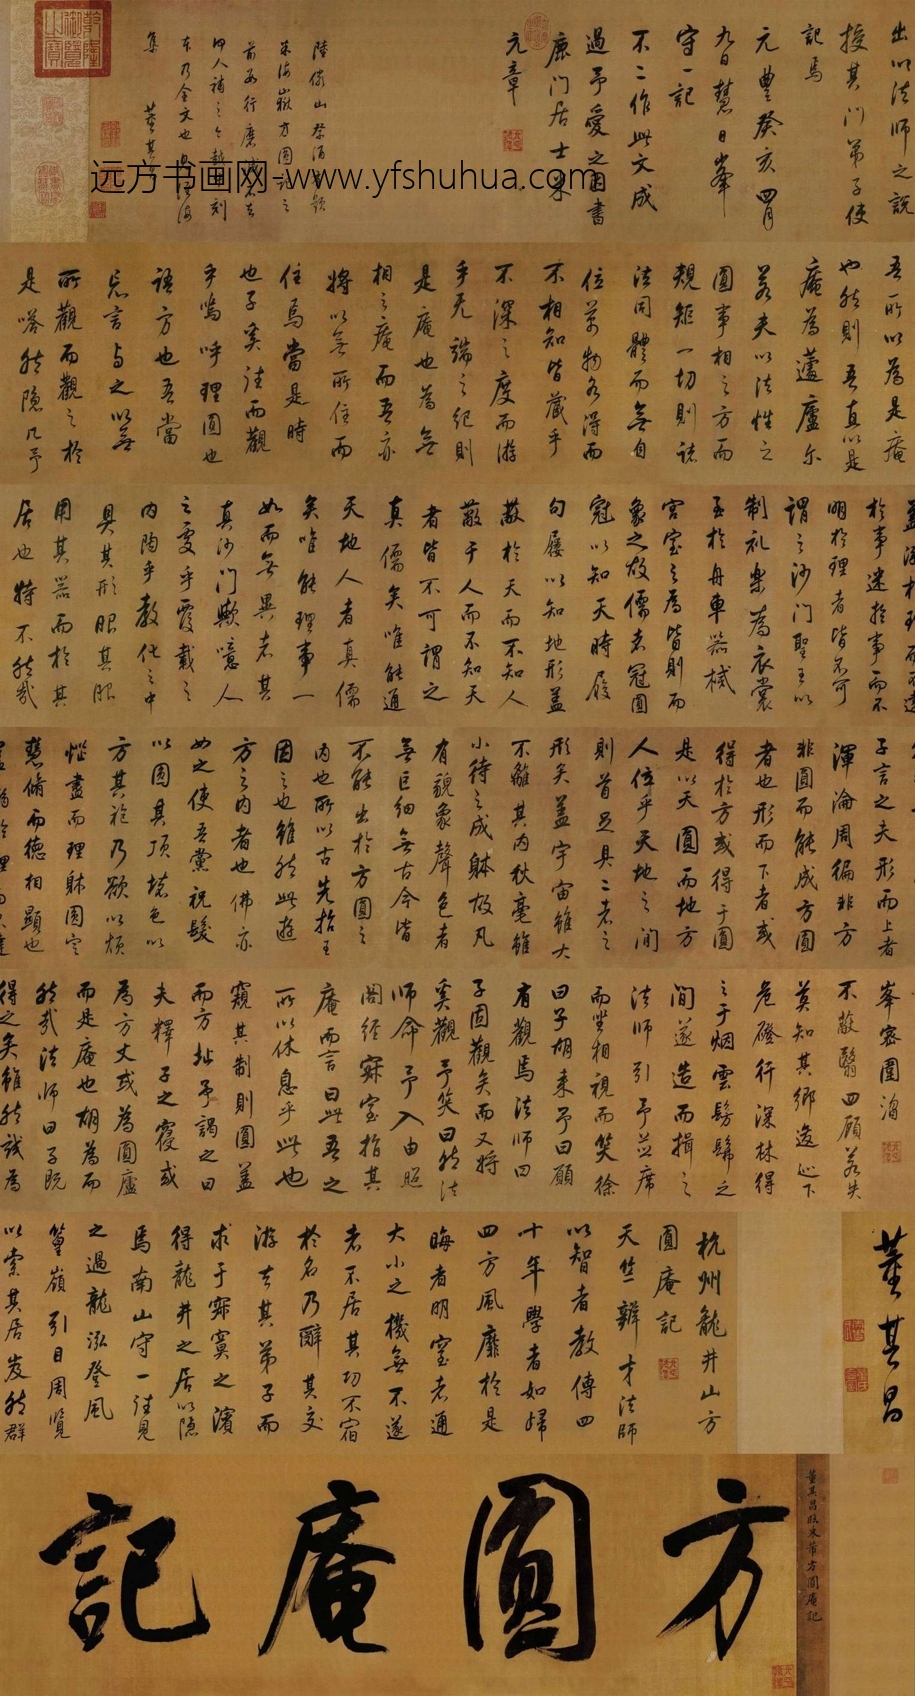 方圓庵記
董其昌臨米芾方圓庵記
董其昌
杭州龍井山方
圓庵記
天竺辯才法師
以智者教傳四
十年學者如歸
四方風靡於是
晦者明窒者通
大小之機無不遂
者不居其功不宿
於名乃辭其交
游去其弟子而
求于寂寞之濱
得龍井之居以隱
焉南山守一往見
之過龍泓登風
篁嶺引目周覽
以索其居岌然群
峯密圍溜
不蔽翳四顧若失
莫知其鄉逡巡下
危磴行深林得
之于烟雲髣髴之
間遂造而揖之
法師引予並席
而坐相視而笑徐
曰子胡來予曰願
有觀焉法師曰
子固觀矣而又將
奚觀予笑曰然法
師命予入由照
閣經寂室指其
庵而言曰此吾之
所以休息乎此也
窺其制則圓蓋
而方址予謁之曰
夫釋子之寢或
為方丈或為圓廬
而是庵也胡為而
然哉法師曰子既
得之矣雖然試為
子言之夫形而上者
渾淪周徧非方
非圓而能成方圓
者也形而下者或
得於方或得于圓
是以天圓而地方
人位乎天地之間
則首足具二者之
形矣蓋宇宙雖大
不離其內秋毫雖
小待之成躰故凡
有貌象聲色者
無巨細無古今皆
不能出於方圓之
內也所以古先哲王
因之也雖然此遊
方之內者也佛亦
如之使吾黨祝髮
以圓其頂壞色以
方其袍乃欲以煩
惱盡而理躰圓定
慧脩而德相顯也
於事迷於事而不
明於理者皆不可
謂之沙門聖王以
制礼樂為衣裳
至於舟車器械
宮室之為皆則而
象之故儒者冠圓
冠以知天時履
句屨以知地形蓋
蔽於天而不知人
蔽于人而不知天
者皆不可謂之
真儒矣唯能通
天地人者真儒
矣唯能理事一
如而無異者其
真沙門歟噫人
之處乎覆載之
內陶乎教化之中
具其形服其服
用其器而於其
居也特不然哉
吾所以為是庵
也然則吾真以是
庵為蘧廬尔
若夫以法性之
圓事相之方而
規矩一切則諸
法同體而無自
位萬物各得而
不相知皆藏乎
不深之度而游
乎无端之紀則
是庵也為無
相之庵而吾亦
將以無所住而
住焉當是時
也子奚往而觀
乎嗚呼理圓也
語方也吾當
忘言與之以無
所觀而觀之於
是嗒然隱几予
出以法師之說
授其門弟子使
記焉
元豐癸亥四月
九日慧日峯
守一記
不二作此文成
過予愛之因書
鹿門居士米
元章
陸儼山祭酒題
米海嶽方圓庵之
集
董其
远方书画网-www.yfshuhua.com
乾隆御覽之寶